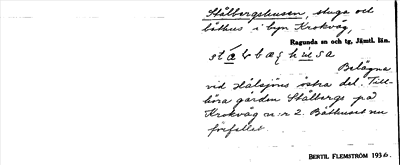 Stålbergshusen, stuga och
båthus i byn Krokvåg,
Ragunda sn och tg, Jämtl. län.
Belägna
vid Hålsjöns östra del. Till-
höra gården Stålbergs på
Krokvåg nr 2. Båthuset nu
förfallet.
BERTIL FLEMSTRÖM 1936.